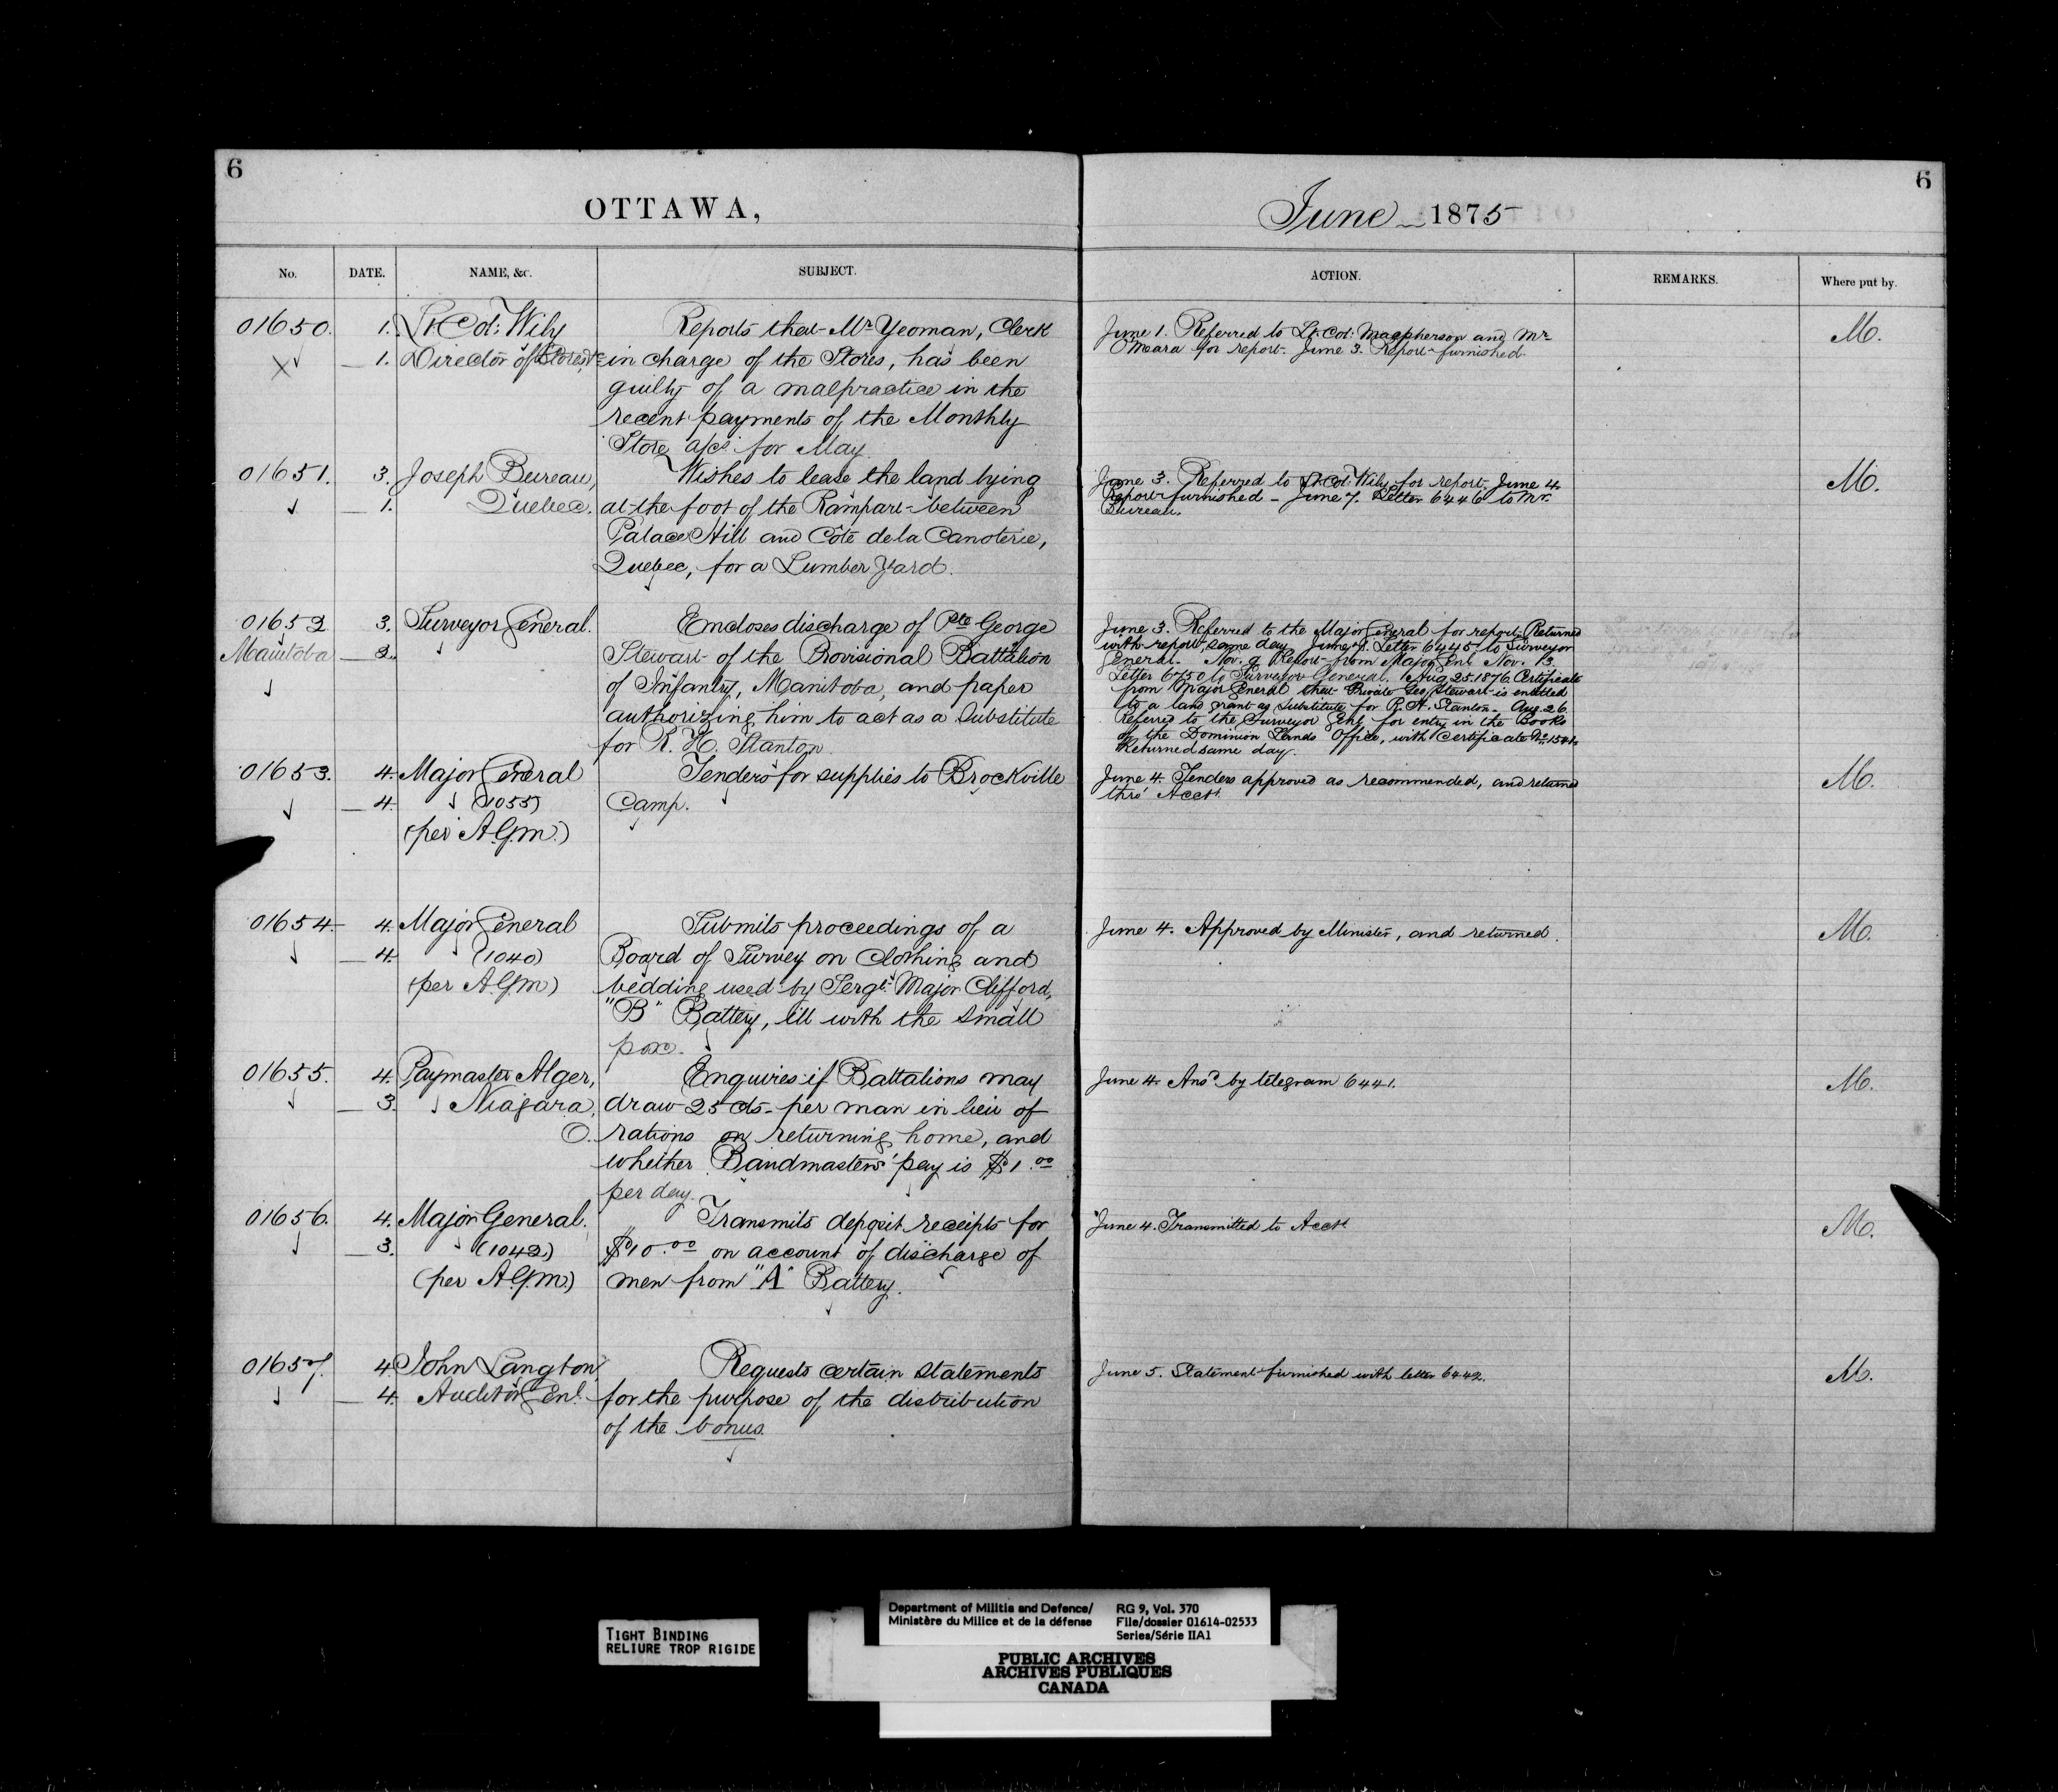 6
OTTAWA,
No.
DATE.
NAME, &c.
SUBJECT.
01650.
1.
Lt Col: Wily
Reports that Mr Yeoman, Clerk
1.
Director of Stores
in charge of the Stores, has been
guilty of a malpractice in the
recent payments of the Monthly
Store a/cs for May.
01651.
3.
Joseph Bureau,
Wishes to lease the land lying
1.
Quebec.
at the foot of the Rampart between
Palace Hill and Côte de la Canoterie,
Quebec, for a Lumber Yard.
01652
3.
Surveyor General.
Encloses discharge of Pte George
Manitoba
Stewart of the Provisional Battalion
of Infantry, Manitoba, and paper
authorizing him to act as a Substitute
for R. H. Stanton.
01653.
4.
Major General
Tenders for supplies to Brockville
4.
(1055)
Camp.
(per A.G.M.)
01654
4.
Major General
Submits proceedings of a
4.
(1040)
Board of Survey on Clothing and
(per A.G.M)
bedding used by Sergt. Major Clifford,
"B" Battery, ill with the small
pox.
01655.
4.
Paymaster Alger,
Enquires if Battalions may
3.
Niagara,
draw 25 cts. per man in lieu of
O.
rations on returning home, and
whether Bandmasters' pay is $1.00
per day.
01656.
4.
Major General.
Transmits deposit receipts for
3.
(1042)
$10.00 on account of discharge of
(per A.G.M.)
men from "A" Battery.
01657.
4
John Langton
Requests certain statements
4.
Auditor Genl.
for the purpose of the distribution
of the bonus.
6
June 1875
ACTION.
REMARKS.
Where put by.
June 1. Referred to Lt. Col: Macpherson and Mr
O'Meara for report. June 3. Report furnished.
M.
June 3. Referred to Lt Col: Wily for report. June 4.
Report furnished - June 7. Letter 6446 to Mr.
Bureau.
M.
June 3. Referred to the Major General for report. Returned
with report same day. June 7. Letter 6445 to Surveyor
General. Nov. 9 Report from Major Genl Nov. 13.
Letter 6750 to Surveyor General. Aug 25. 1876. Certificate
from Major General that Private Geo Stewart is entitled
to a land grant as substitute for R. H. Stanton. Aug. 26.
Referred to the Surveyor Genl for entry in the Books
of the Dominion Lands Office, with Certificate No.
Returned same day.
June 4. Tenders approved as recommended, and returned
thro' Acct.
M.
June 4. Approved by Minister, and returned.
M.
June 4. Ansd by telegram 6441.
M.
June 4. Transmitted to Acct
M.
June 5. Statement furnished with letter 6442.
M.
TIGHT BINDING
RELIURE TROP RIGIDE
Department of Militia and Defence/
Ministère du Milice et de la défense
RG 9, Vol. 370
File/dossier 01614-02533
Series/Série IIA1
PUBLIC ARCHIVES
ARCHIVES PUBLIQUES
CANADA